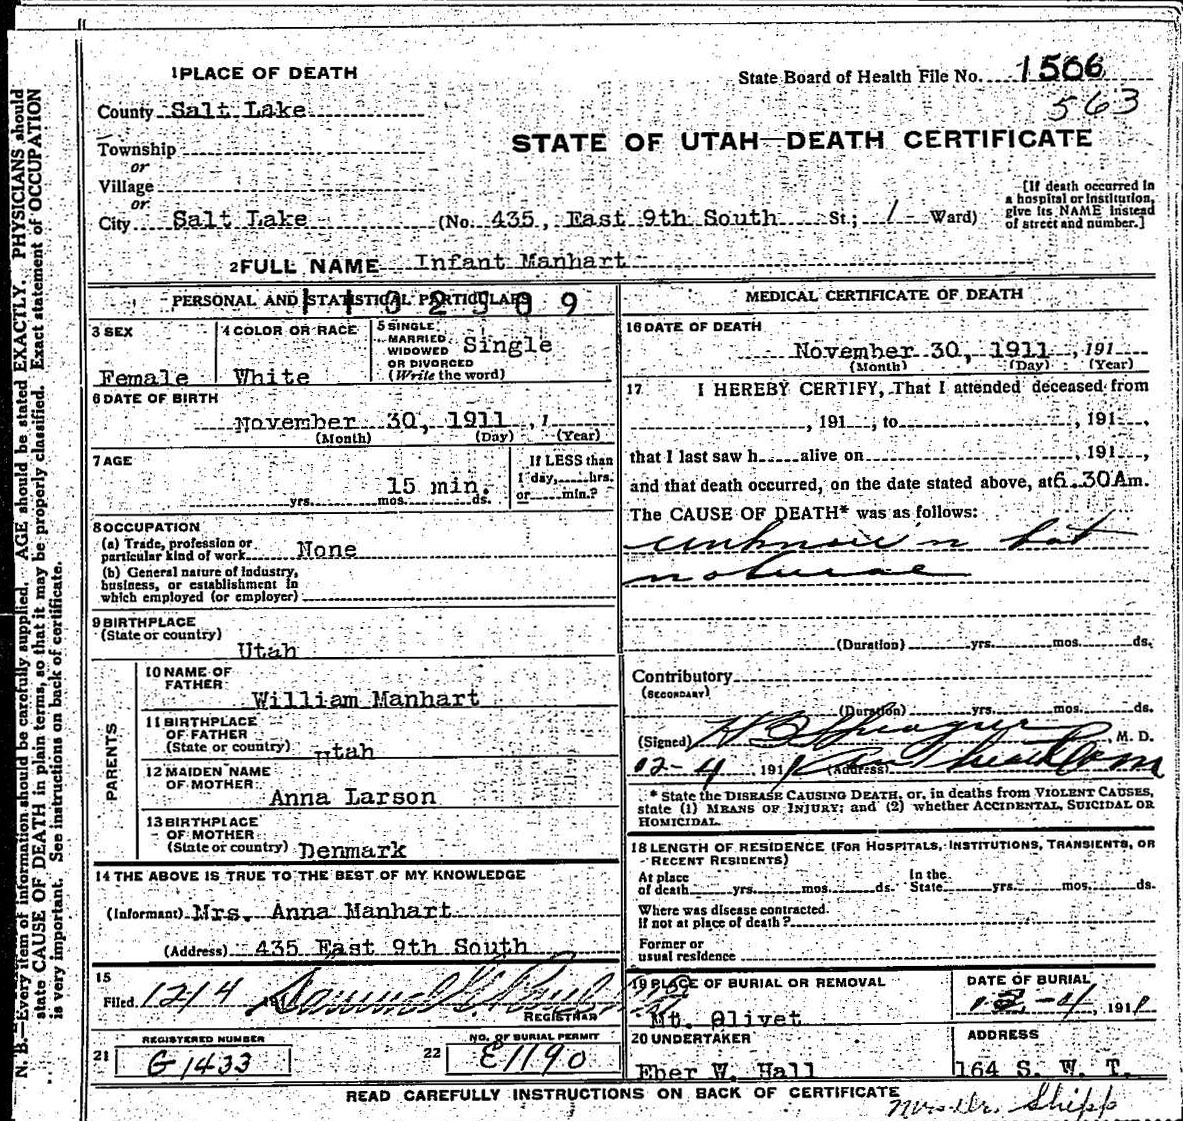 N. B.—Every item of information should be carefully supplied. AGE should be stated EXACTLY. PHYSICIANS should
state CAUSE OF DEATH in plain terms, so that it may be properly classified. Exact statement of OCCUPATION
is very important. See instructions on back of certificate.
1 PLACE OF DEATH
State Board of Health File No. 1506
563
County Salt Lake
STATE OF UTAH—DEATH CERTIFICATE
Township
or
Village
or
City Salt Lake (No. 435, East 9th South St; 1 Ward)
[If death occurred in
a hospital or institution,
give its NAME instead
of street and number.]
2 FULL NAME Infant Manhart
PERSONAL AND STATISTICAL PARTICULARS
3 SEX
Female
4 COLOR OR RACE
White
5 SINGLE
MARRIED
WIDOWED
OR DIVORCED
(Write the word)
Single
6 DATE OF BIRTH
November 30, 1911, 1
(Month) (Day) (Year)
7 AGE
15 min.
yrs. mos. ds.
If LESS than
1 day, hrs.
or min.?
8 OCCUPATION
(a) Trade, profession or
particular kind of work None
(b) General nature of industry,
business, or establishment in
which employed (or employer)
9 BIRTHPLACE
(State or country)
Utah
PARENTS
10 NAME OF
FATHER
William Manhart
11 BIRTHPLACE
OF FATHER
(State or country) Utah
12 MAIDEN NAME
OF MOTHER
Anna Larson
13 BIRTHPLACE
OF MOTHER
(State or country) Denmark
14 THE ABOVE IS TRUE TO THE BEST OF MY KNOWLEDGE
(Informant) Mrs. Anna Manhart
(Address) 435 East 9th South
15
Filed 12/4 191
REGISTRAR
21
REGISTERED NUMBER
G1433
22
NO. OF BURIAL PERMIT
E1190
MEDICAL CERTIFICATE OF DEATH
16 DATE OF DEATH
November 30, 1911, 191
(Month) (Day) (Year)
17 I HEREBY CERTIFY, That I attended deceased from
, 191 , to , 191 ,
that I last saw h alive on , 191 ,
and that death occurred, on the date stated above, at 6.30Am.
The CAUSE OF DEATH* was as follows:
unknown but
natural
(Duration) yrs. mos. ds.
Contributory
(SECONDARY)
(Duration) yrs. mos. ds.
(Signed) M. D.
12-4, 1911 (Address)
* State the DISEASE CAUSING DEATH, or, in deaths from VIOLENT CAUSES,
state (1) MEANS OF INJURY; and (2) whether ACCIDENTAL, SUICIDAL OR
HOMICIDAL.
18 LENGTH OF RESIDENCE (FOR HOSPITALS, INSTITUTIONS, TRANSIENTS, OR
RECENT RESIDENTS)
At place
of death yrs. mos. ds. In the
State yrs. mos. ds.
Where was disease contracted.
if not at place of death?
Former or
usual residence
19 PLACE OF BURIAL OR REMOVAL
Mt. Olivet
DATE OF BURIAL
12-4, 1911
20 UNDERTAKER
Eber W. Hall
ADDRESS
164 S. W. T.
READ CAREFULLY INSTRUCTIONS ON BACK OF CERTIFICATE
Mrs Dr. Shipp